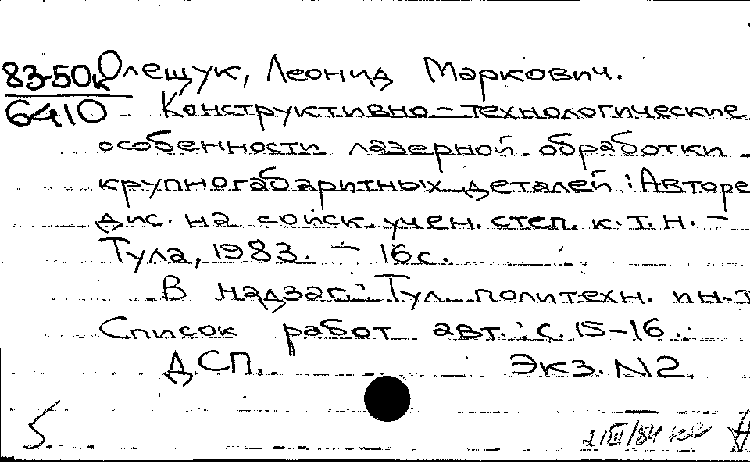 83-50к Олещук, Леонид Маркович.
6410 Конструктивно-технологические
особенности лазерной обработки
крупногабаритных деталей: Авторе
дис. на соиск. учен. степ. к.т.н. -
Тула, 1983. - 16с.
В надзаг.: Тул. политехн. ин-т
Список работ авт.: с. 15-16.
ДСП. Экз. N2.
5
2/III/84